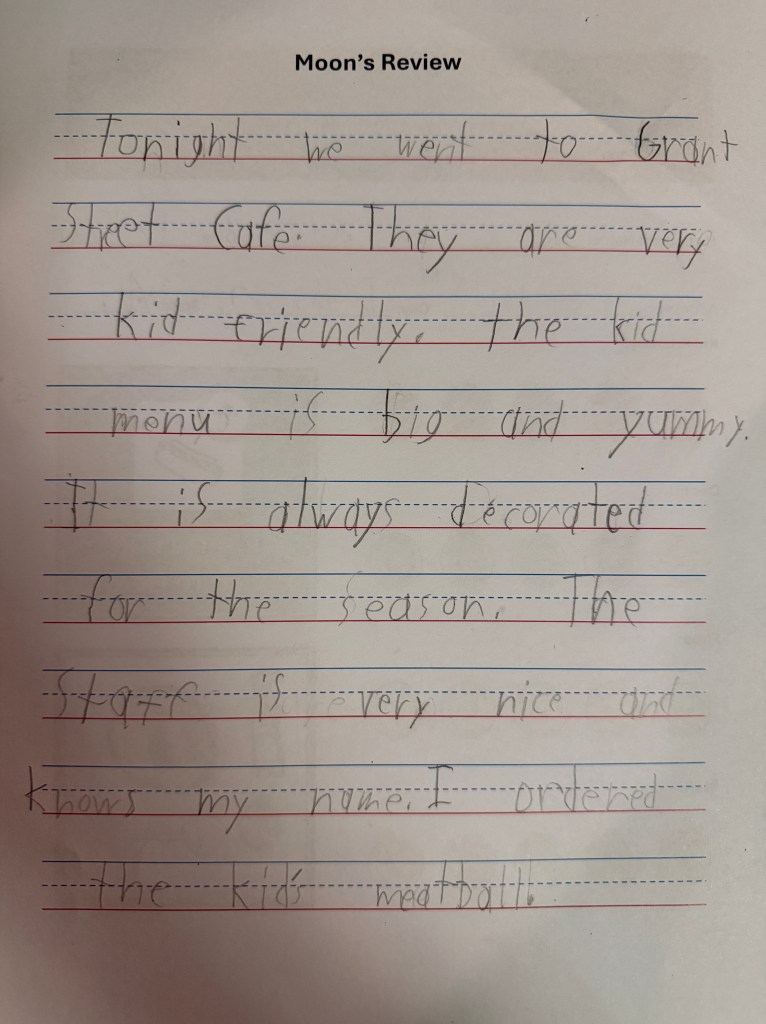 Moon's Review
Tonight we went to Grant
Street Cafe. They are very
kid friendly. the kid
menu is big and yummy.
It is always decorated
for the season. The
Staff is very nice and
knows my name. I ordered
the kid's meatball.